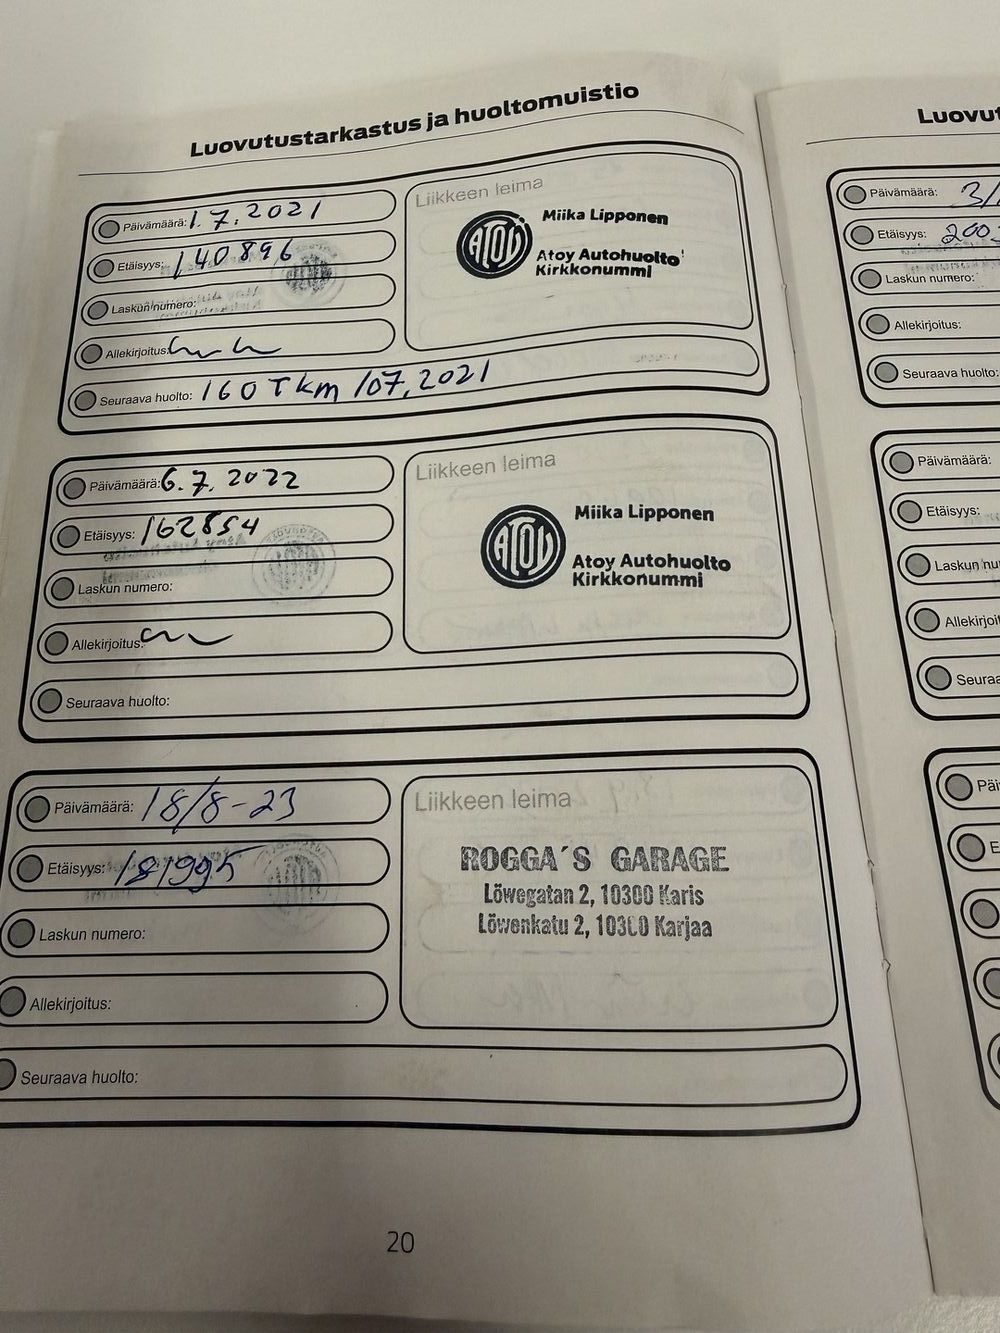 Luovutustarkastus ja huoltomuistio
Päivämäärä: 1.7.2021
Etäisyys: 140896
Laskun numero:
Allekirjoitus:
Seuraava huolto: 160 Tkm /07.2021
Liikkeen leima
ATOY
Miika Lipponen
Atoy Autohuolto
Kirkkonummi
Päivämäärä: 6.7.2022
Etäisyys: 162854
Laskun numero:
Allekirjoitus:
Seuraava huolto:
Liikkeen leima
ATOY
Miika Lipponen
Atoy Autohuolto
Kirkkonummi
Päivämäärä: 18/8-23
Etäisyys: 181995
Laskun numero:
Allekirjoitus:
Seuraava huolto:
Liikkeen leima
ROGGA´S GARAGE
Löwegatan 2, 10300 Karis
Löwenkatu 2, 10300 Karjaa
20
Luovut
Päivämäärä: 3/
Etäisyys: 200
Laskun numero:
Allekirjoitus:
Seuraava huolto:
Päivämäärä:
Etäisyys:
Laskun nu
Allekirjoi
Seuraa
Päi
E